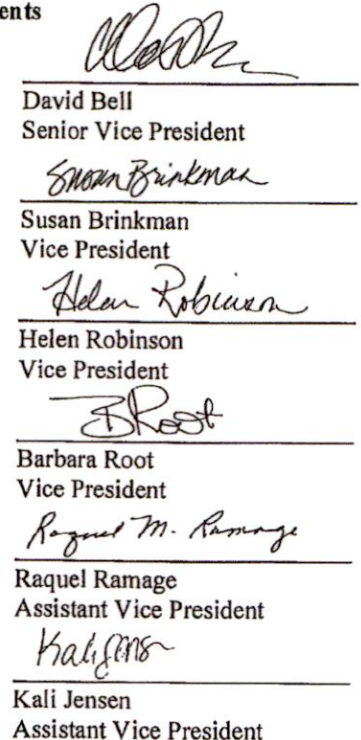 ents
David Bell
Senior Vice President
Susan Brinkman
Susan Brinkman
Vice President
Helen Robinson
Helen Robinson
Vice President
BRoot
Barbara Root
Vice President
Raquel M. Ramage
Raquel Ramage
Assistant Vice President
Kali
Kali Jensen
Assistant Vice President